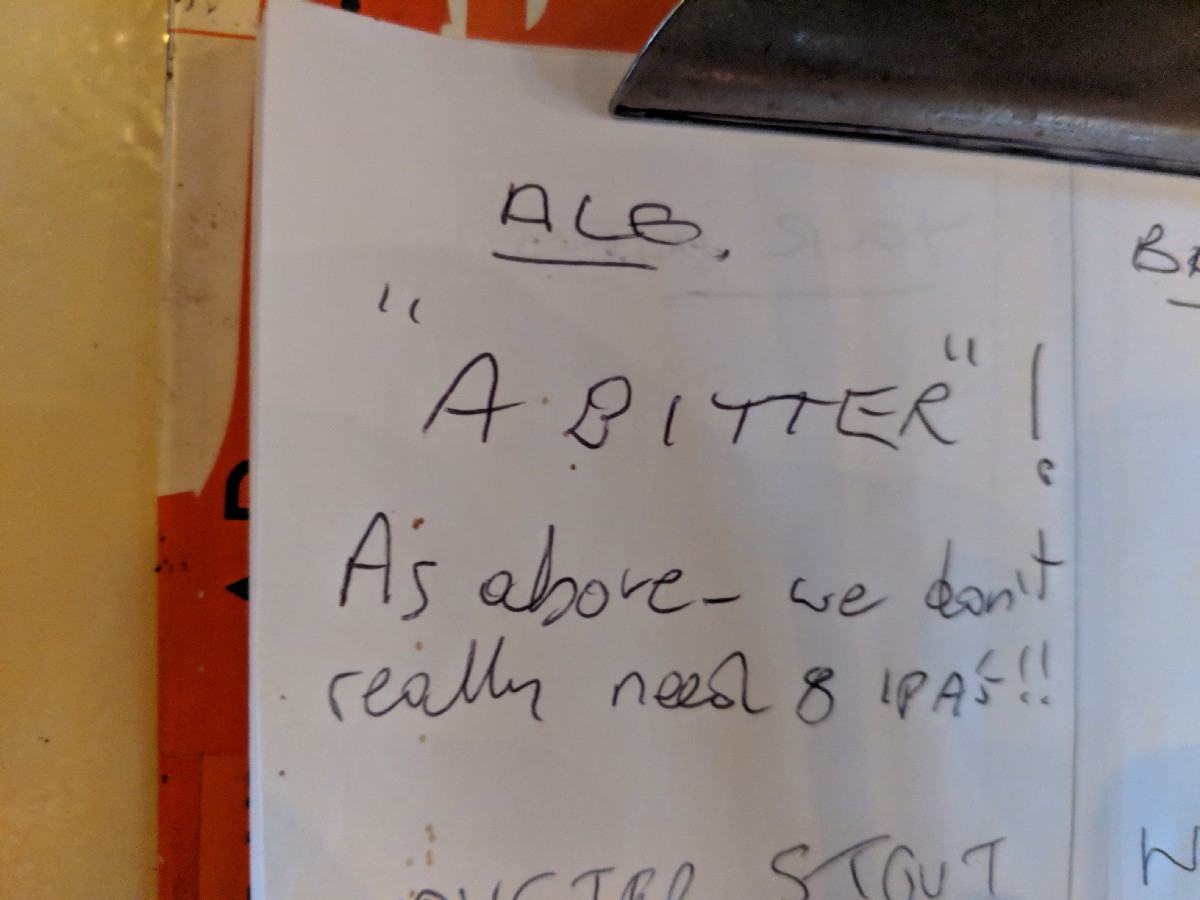 ALE.
BR
"A BITTER"!
As above - we don't
really need 8 IPA's!!
OYSTER STOUT
W